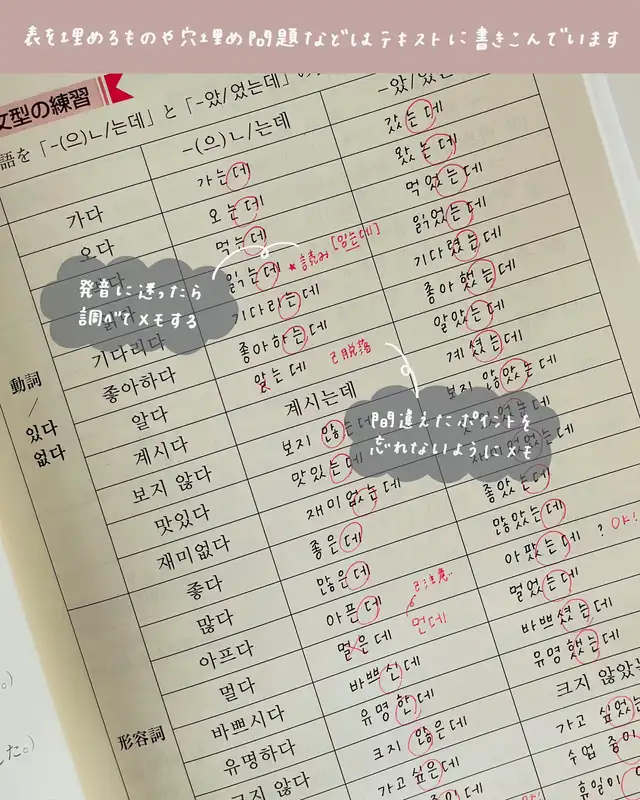 表を埋めるものや穴埋め問題などはテキストに書きこんでいます
文型の練習
語を「-(으)ㄴ/는데」と「-았/었는데」の
-(으)ㄴ/는데
動詞
/
있다
없다
가다 가는데 갔는데
오다 오는데 왔는데
먹는데 먹었는데
읽는데 ★読み [잉는데] 읽었는데
発音に迷ったら
調べてメモする
기다리다 기다리는데 기다렸는데
좋아하다 좋아하는데 좋아했는데
알다 알는데 ㄹ脱落 알았는데
계시다 계시는데 계셨는데
보지 않다 보지 않는데 보지 않았는데
間違えたポイントを
忘れないようにメモ
맛있다 맛있는데
재미없다 재미없는데
形容詞
좋다 좋은데 좋았는데
많다 많은데 많았는데
아프다 아픈데 아팠는데
멀다 멀은데 ㄹ注意 먼데 멀었는데
바쁘시다 바쁘신데 바쁘셨는데
유명하다 유명한데 유명했는데
크지 않다 크지 않은데 크지 않았는
가고 싶은데 가고 싶었는
수업 중이
휴일이
た。)